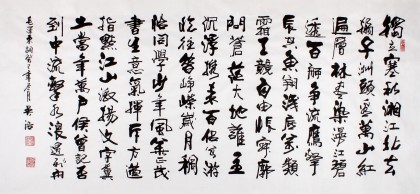 獨立寒秋湘江北去
橘子洲頭看萬山紅
遍層林盡染漫江碧
透百舸争流鷹擊
長空魚翔淺底萬類
霜天競自由悵寥廓
問蒼茫大地誰主
沉浮携来百侣曾游
憶往昔崢嶸歲月稠
恰同學少年風華正茂
書生意氣揮斥方遒
指點江山激揚文字糞
土當年萬户侯曾記否
到中流擊水浪遏飛舟
毛澤東詞年月